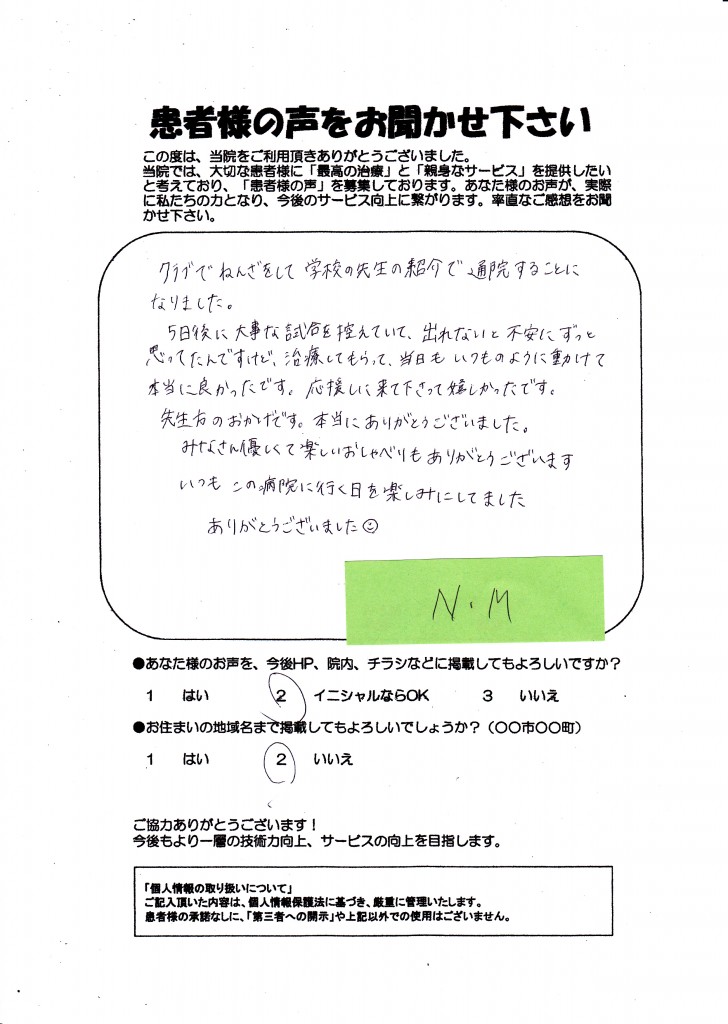 患者様の声をお聞かせ下さい
この度は、当院をご利用頂きありがとうございました。
当院では、大切な患者様に「最高の治療」と「親身なサービス」を提供したい
と考えており、「患者様の声」を募集しております。あなた様のお声が、実際
に私たちの力となり、今後のサービス向上に繋がります。率直なご感想をお聞
かせ下さい。
クラブでねんざをして学校の先生の紹介で通院することに
なりました。
5日後に大事な試合を控えていて、出れないと不安にずっと
思ってたんですけど、治療してもらって、当日もいつものように動けて
本当に良かったです。応援しに来て下さって嬉しかったです。
先生方のおかげです。本当にありがとうございました。
みなさん優しくて楽しいおしゃべりもありがとうございます
いつもこの病院に行く日を楽しみにしてました
ありがとうございました☺
N・M
●あなた様のお声を、今後HP、院内、チラシなどに掲載してもよろしいですか？
1 はい 2 イニシャルならOK 3 いいえ
●お住まいの地域名まで掲載してもよろしいでしょうか？（〇〇市〇〇町）
1 はい 2 いいえ
ご協力ありがとうございます！
今後もより一層の技術力向上、サービスの向上を目指します。
「個人情報の取り扱いについて」
ご記入頂いた内容は、個人情報保護法に基づき、厳重に管理いたします。
患者様の承諾なしに、「第三者への開示」や上記以外での使用はございません。